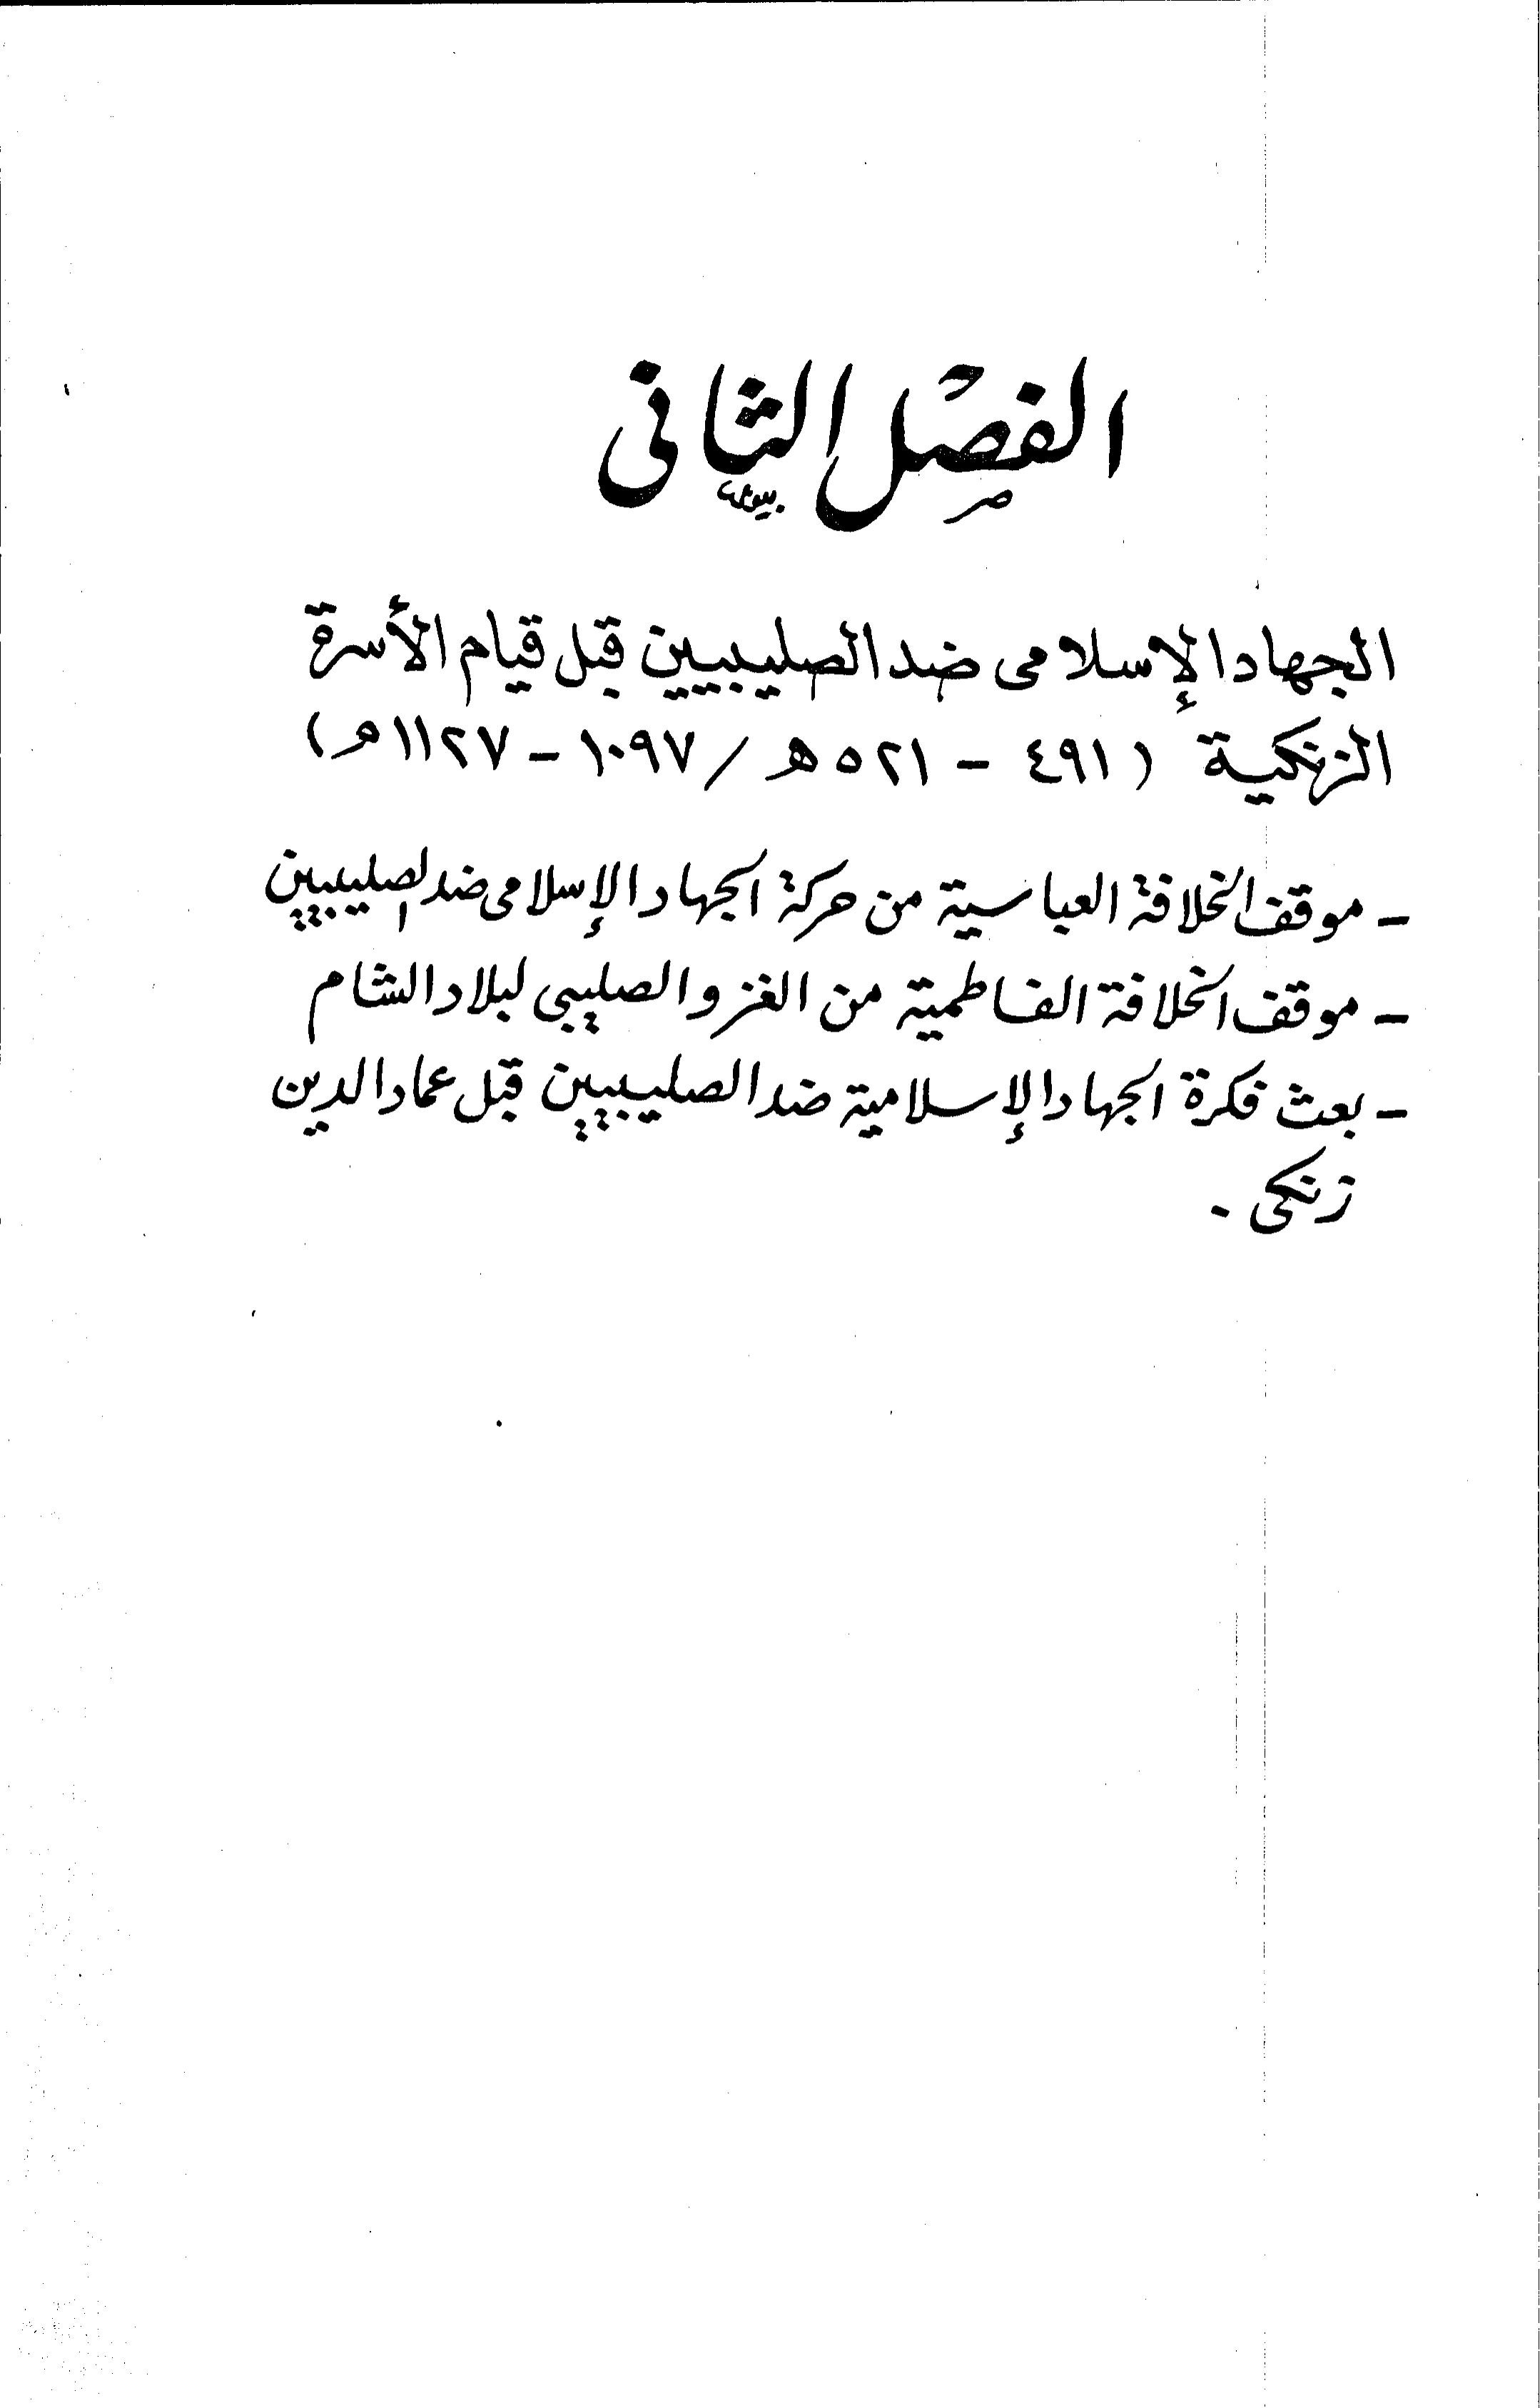 الفصل الثانى
الجهاد الإسلامى ضد الصليبيين قبل قيام الأسرة
الزنكية (٤٩١ - ٥٢١ هـ / ١٠٩٧ - ١١٢٧ م)
- موقف الخلافة العباسية من حركة الجهاد الإسلامى ضد الصليبيين
- موقف الخلافة الفاطمية من الغزو الصليبى لبلاد الشام
- بعث فكرة الجهاد الإسلامية ضد الصليبيين قبل عماد الدين
زنكى .